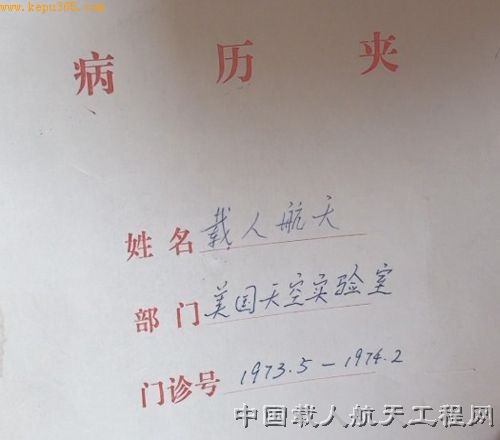 www.kepu365.com
病历夹
姓名 载人航天
部门 美国天空实验室
门诊号 1973.5-1974.2
中国载人航天工程网